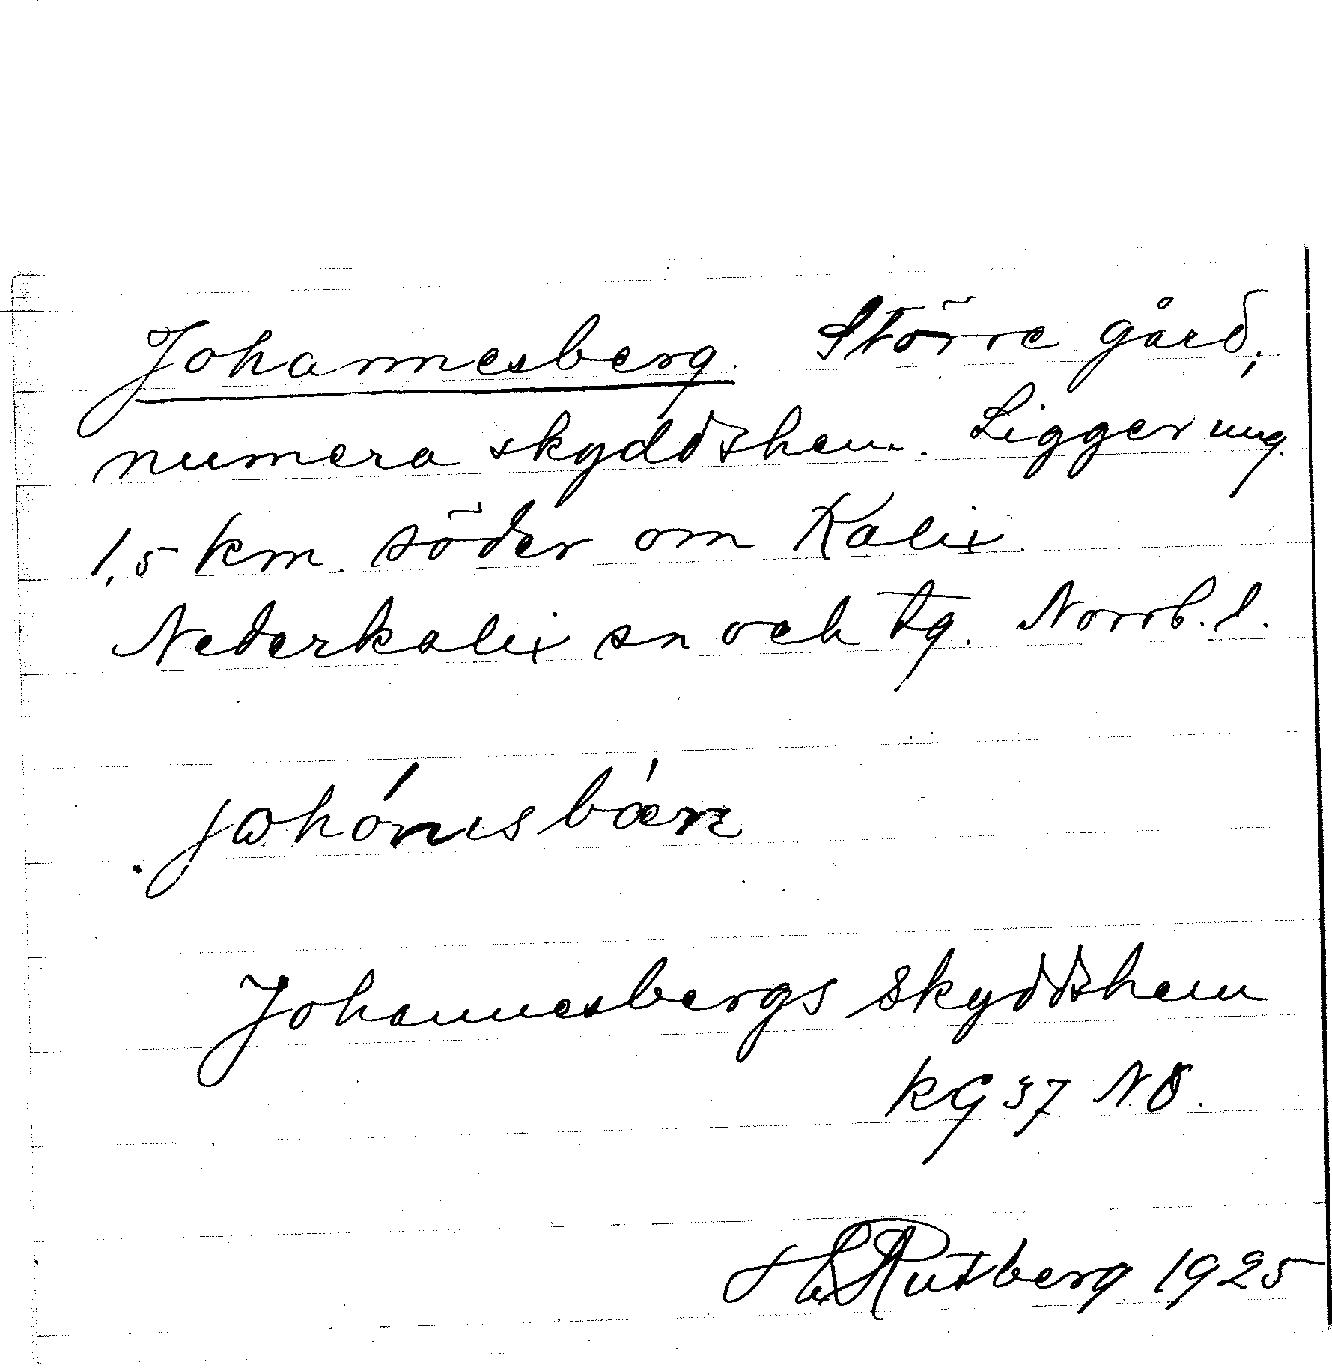 Johannesberg. Större gård,
numera skyddshem. Ligger ung.
1,5 km. söder om Kalix
Nederkalix sn och tg. Norrb. l.
Johannesbergs skyddshem
KG 37 NÖ.
Rutberg 1925